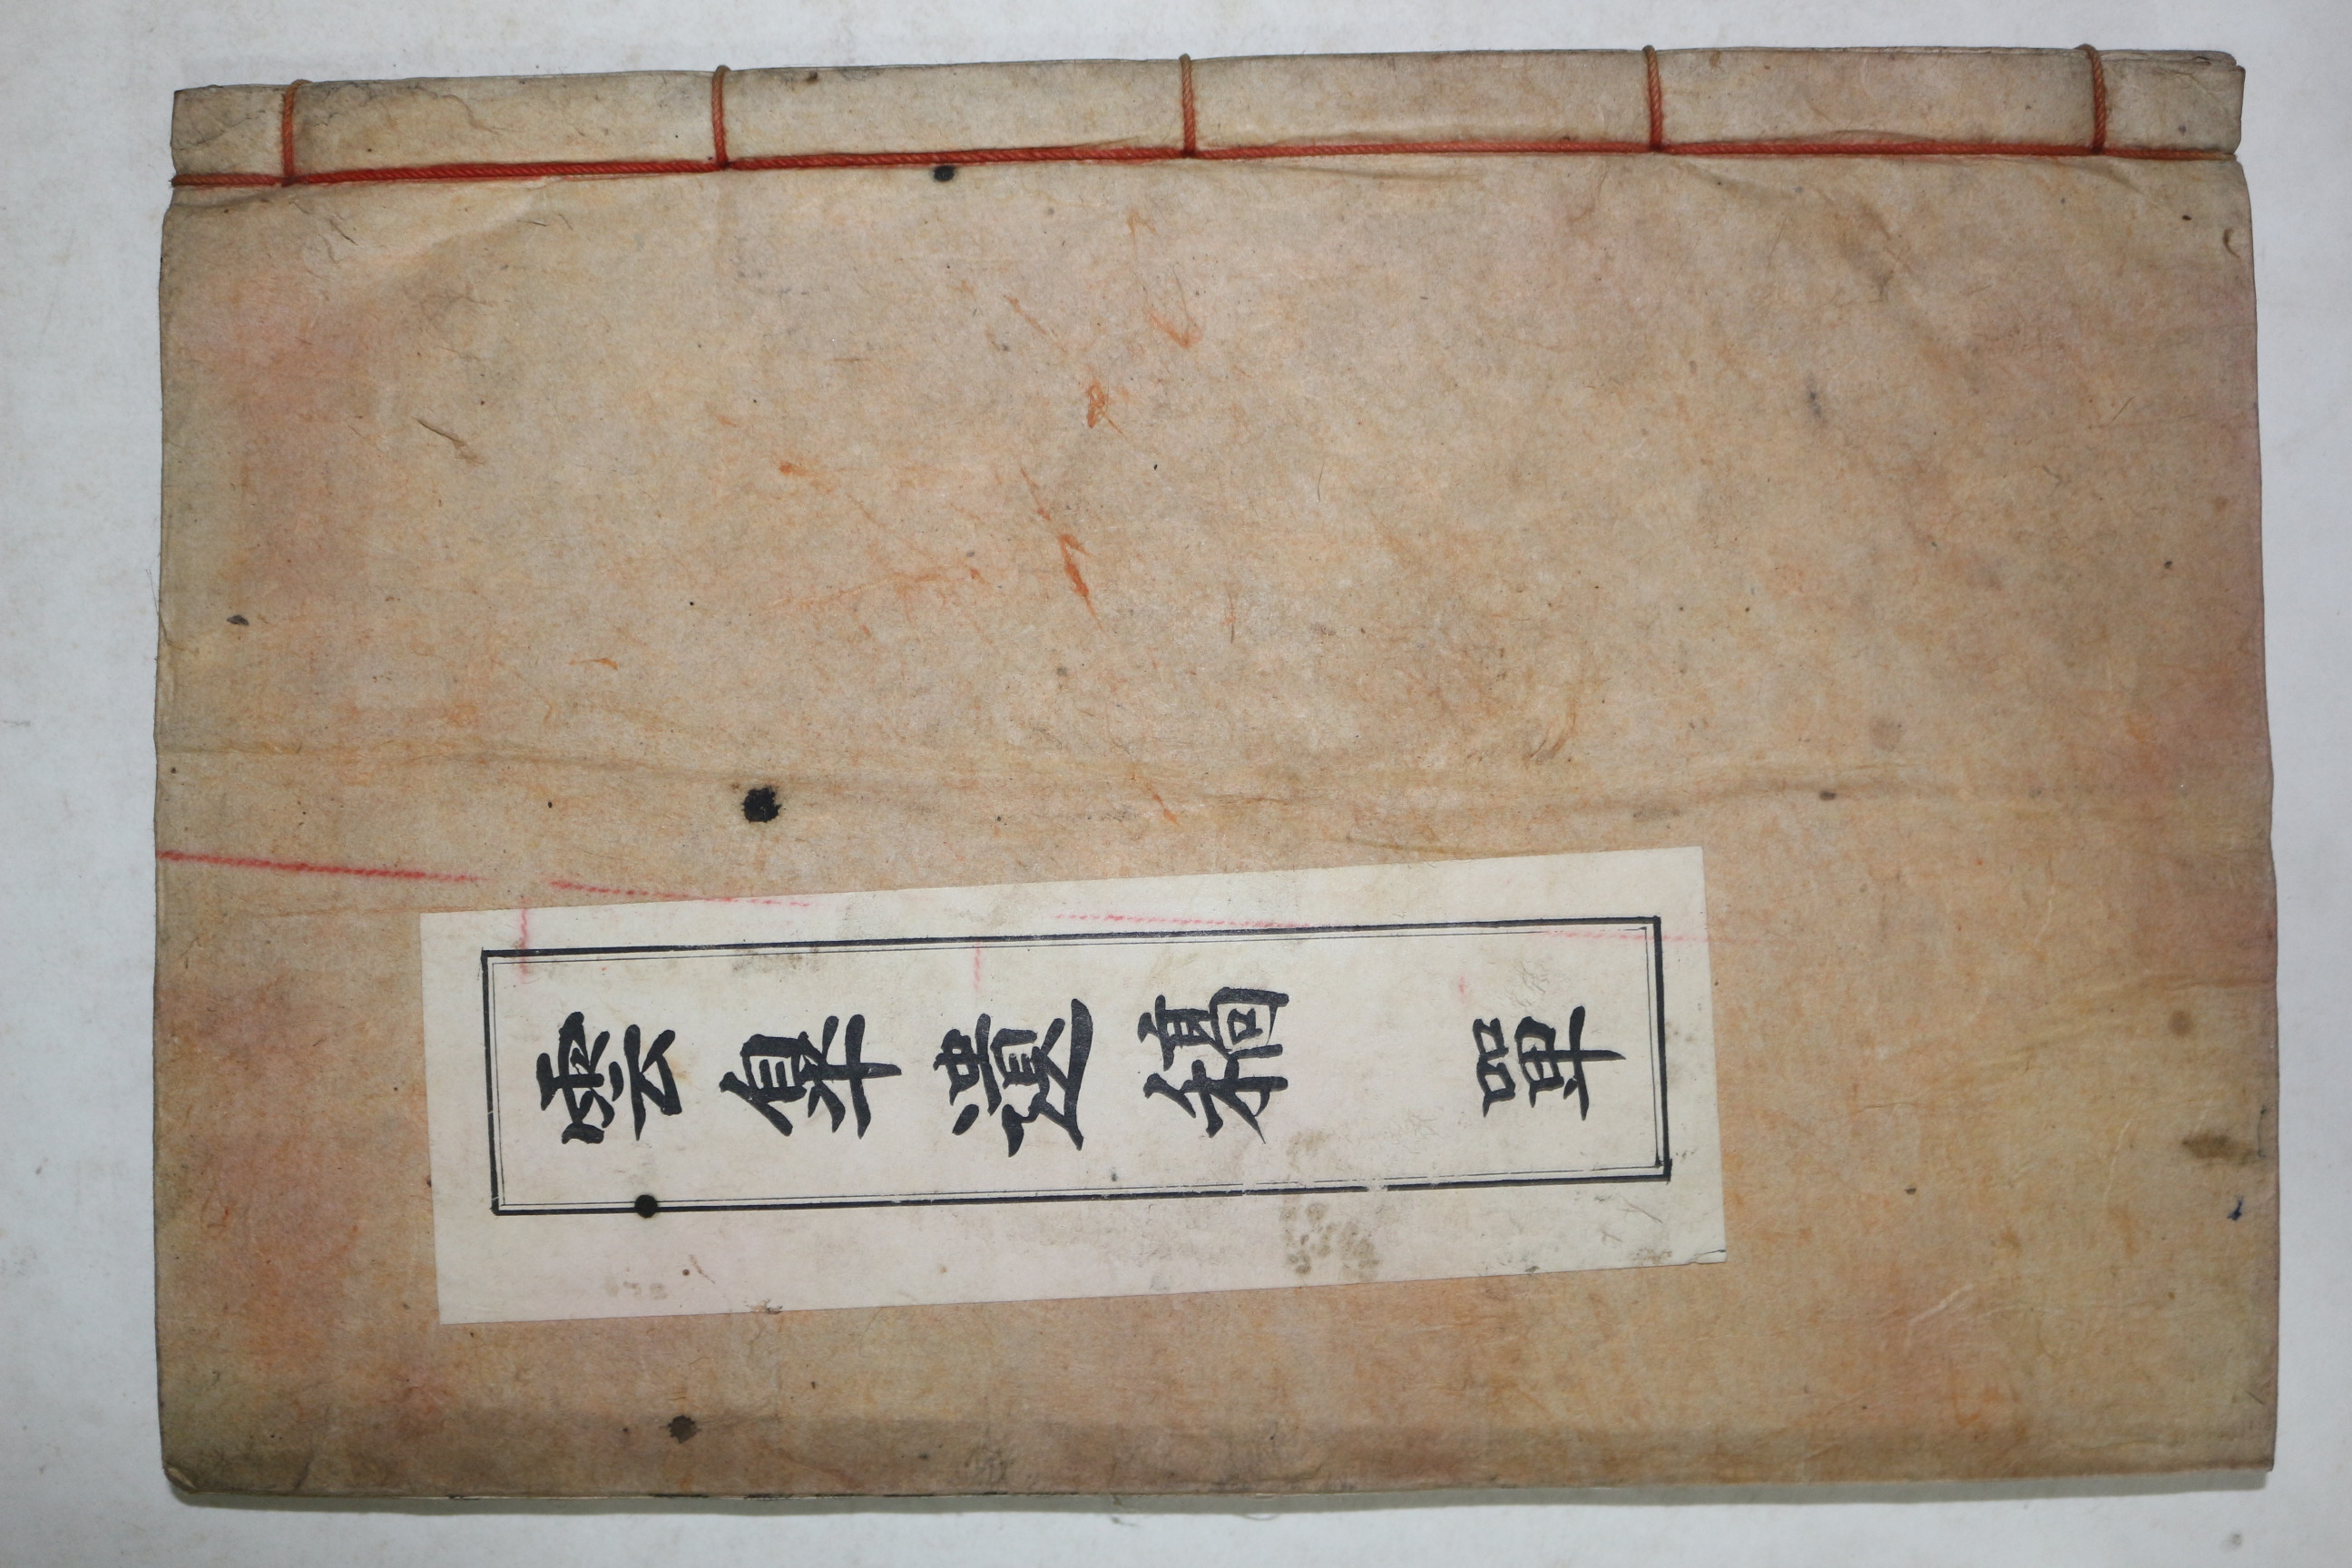 雲皐遺稿 單